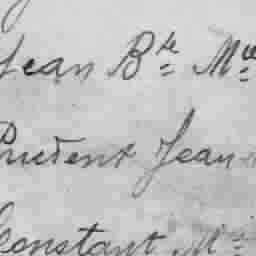 Jean Bte Mie
Prudent Jean
Constant Mie